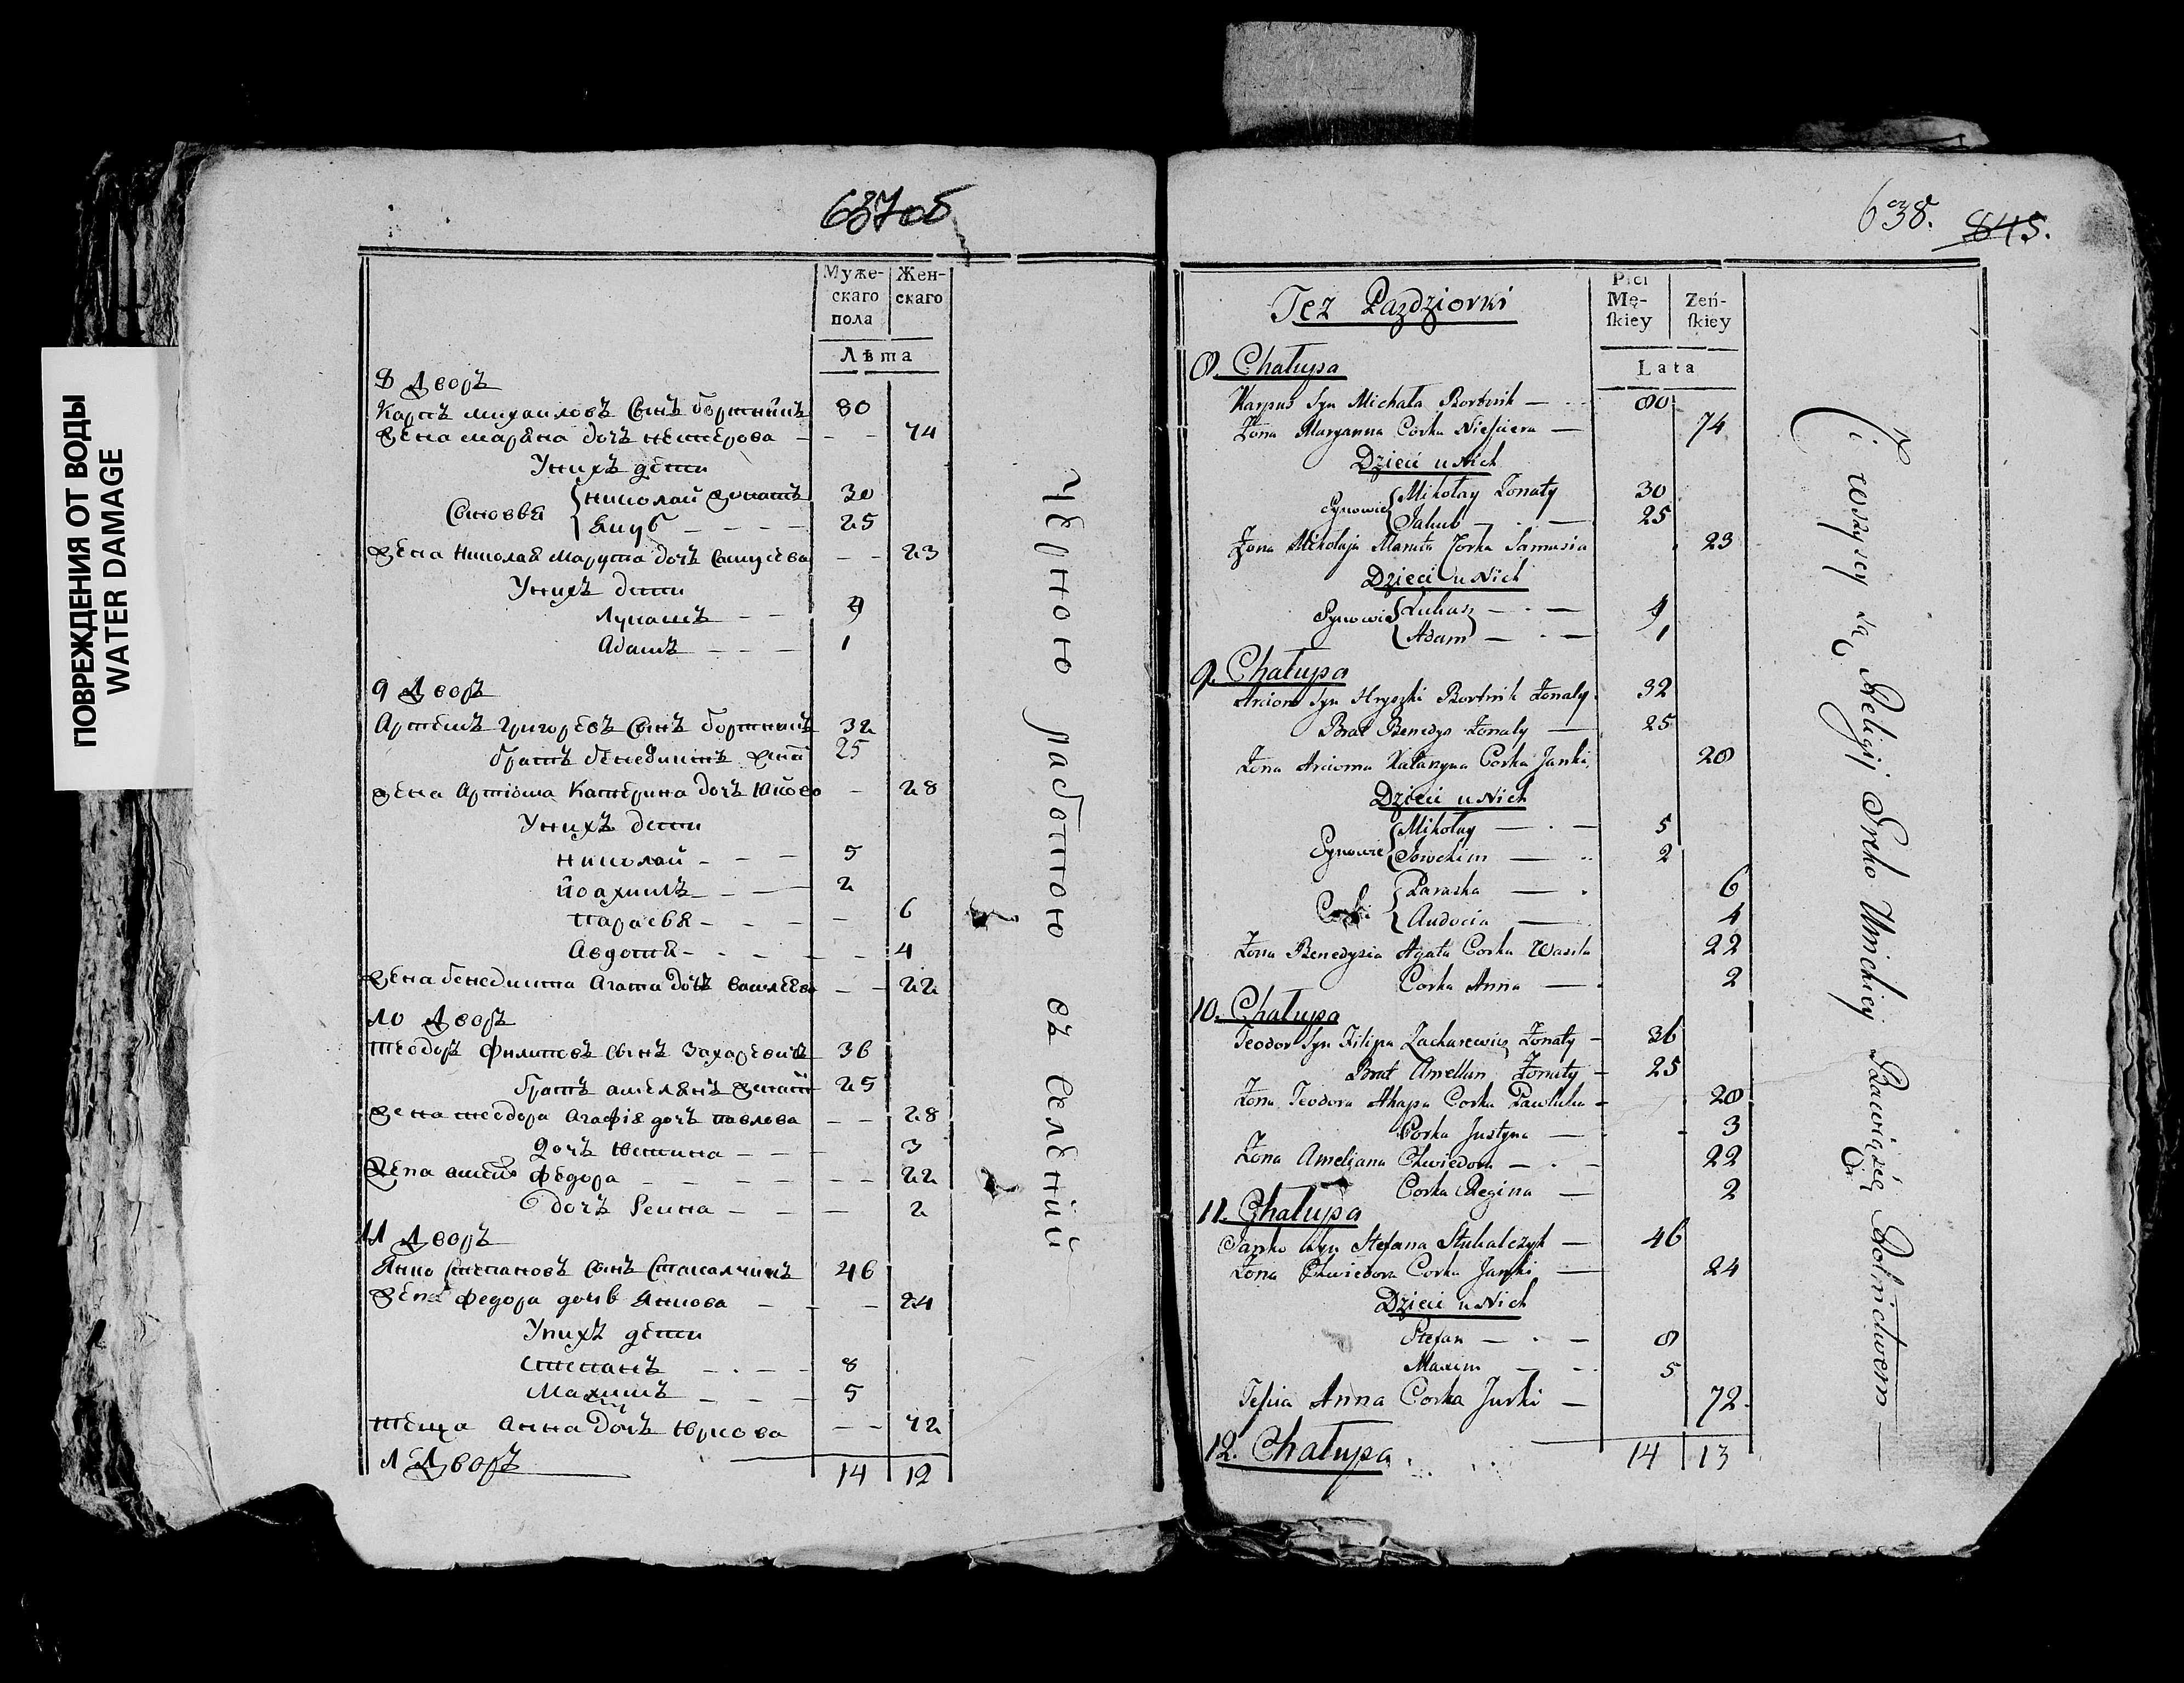 ПОВРЕЖДЕНИЯ ОТ ВОДЫ
WATER DAMAGE
637об
Муже-
скаго
пола
Жен-
скаго
Лѣта
8 Дворъ
Карпъ михаиловъ Сынъ бортникъ 80
жена марѣяна дочъ нестерова - - - 74
Унихъ дети
Сыновья { николай женатъ 30
Якуб - - - - 25
жена Николая Марута дочъ Самусева - - 23
Унихъ дети
Лукашъ - - 4
Адамъ - - - 1
9 Дворъ
Артемъ григоревъ Сынъ бортникъ 32
братъ бенедиктъ жена 25
жена Артіома Катерина дочъ Юнково - 28
Унихъ дети
николай - - - 5
йоахимъ - - - 2
парасвя - - - - 6
Авдотя - - - - - 4
жена бенедикта Агата дочъ василева - - 22
10 Дворъ
теодоръ филиповъ сынъ Захаревичъ 36
братъ амелянъ женатъ 25
жена теодора Агафія дочъ павлова - - 28
дочъ юстина - - - 3
жена федора - - - - - - 22
дочъ Регина - - - 2
11 Дворъ
Янко степановъ сынъ Стакалчикъ 46
жена федора дочъ Янкова - - - 24
Унихъ дети
степанъ - - - - 8
Махимъ - - - 5
теща Анна дочъ юркова - - 72
1 Дворъ
14 12
Черною работною въ селеній
638. 845.
Też Pazdziorki
Płci
Mę-
ſkiey
Żeń-
ſkiey
Lata
8. Chałupa
Karpus Syn Michała Bortnik — 80
Żona Maryanna Corka Nieściera — 74
Dzieci u Nich
Synowie { Mikołay Żonaty 30
Jakub — 25
Żona Mikołaja Maruta Corka Samusia 23
Dzieci u Nich
Synowie { Łukasz — 4
Adam — 1
9. Chałupa
Arciom Syn Hryszki Bortnik Żonaty. 32
Brat Benedys Żonaty — 25
Żona Arcioma Katarzyna Corka Janki 28
Dzieci u Nich
Synowie { Mikołay — 5
Jowchim — 2
Corki { Paraska — 6
Audocia — 4
Żona Benedysia Agata Corka Wasila 22
Corka Anna — 2
10. Chałupa
Teodor Syn Filipa Zacharewicz Żonaty - 36
Brat Amellan Żonaty - 25
Żona Teodora Ahapa Corka Pawluka - 28
Corka Justyna — 3
Żona Ameljana Chwiedora — 22
Corka Regina — 2
11. Chałupa
Janko Syn Stefana Stukalczyk — 46
Żona Chwiedora Corka Janki — 24
Dzieci u Nich
Stefan — 8
Maxim — 5
Teścia Anna Corka Jurki — 72
12. Chałupa
14 13
Ci wszyscy są Religij Grko Unickiey Bawią się Rolnictwem —